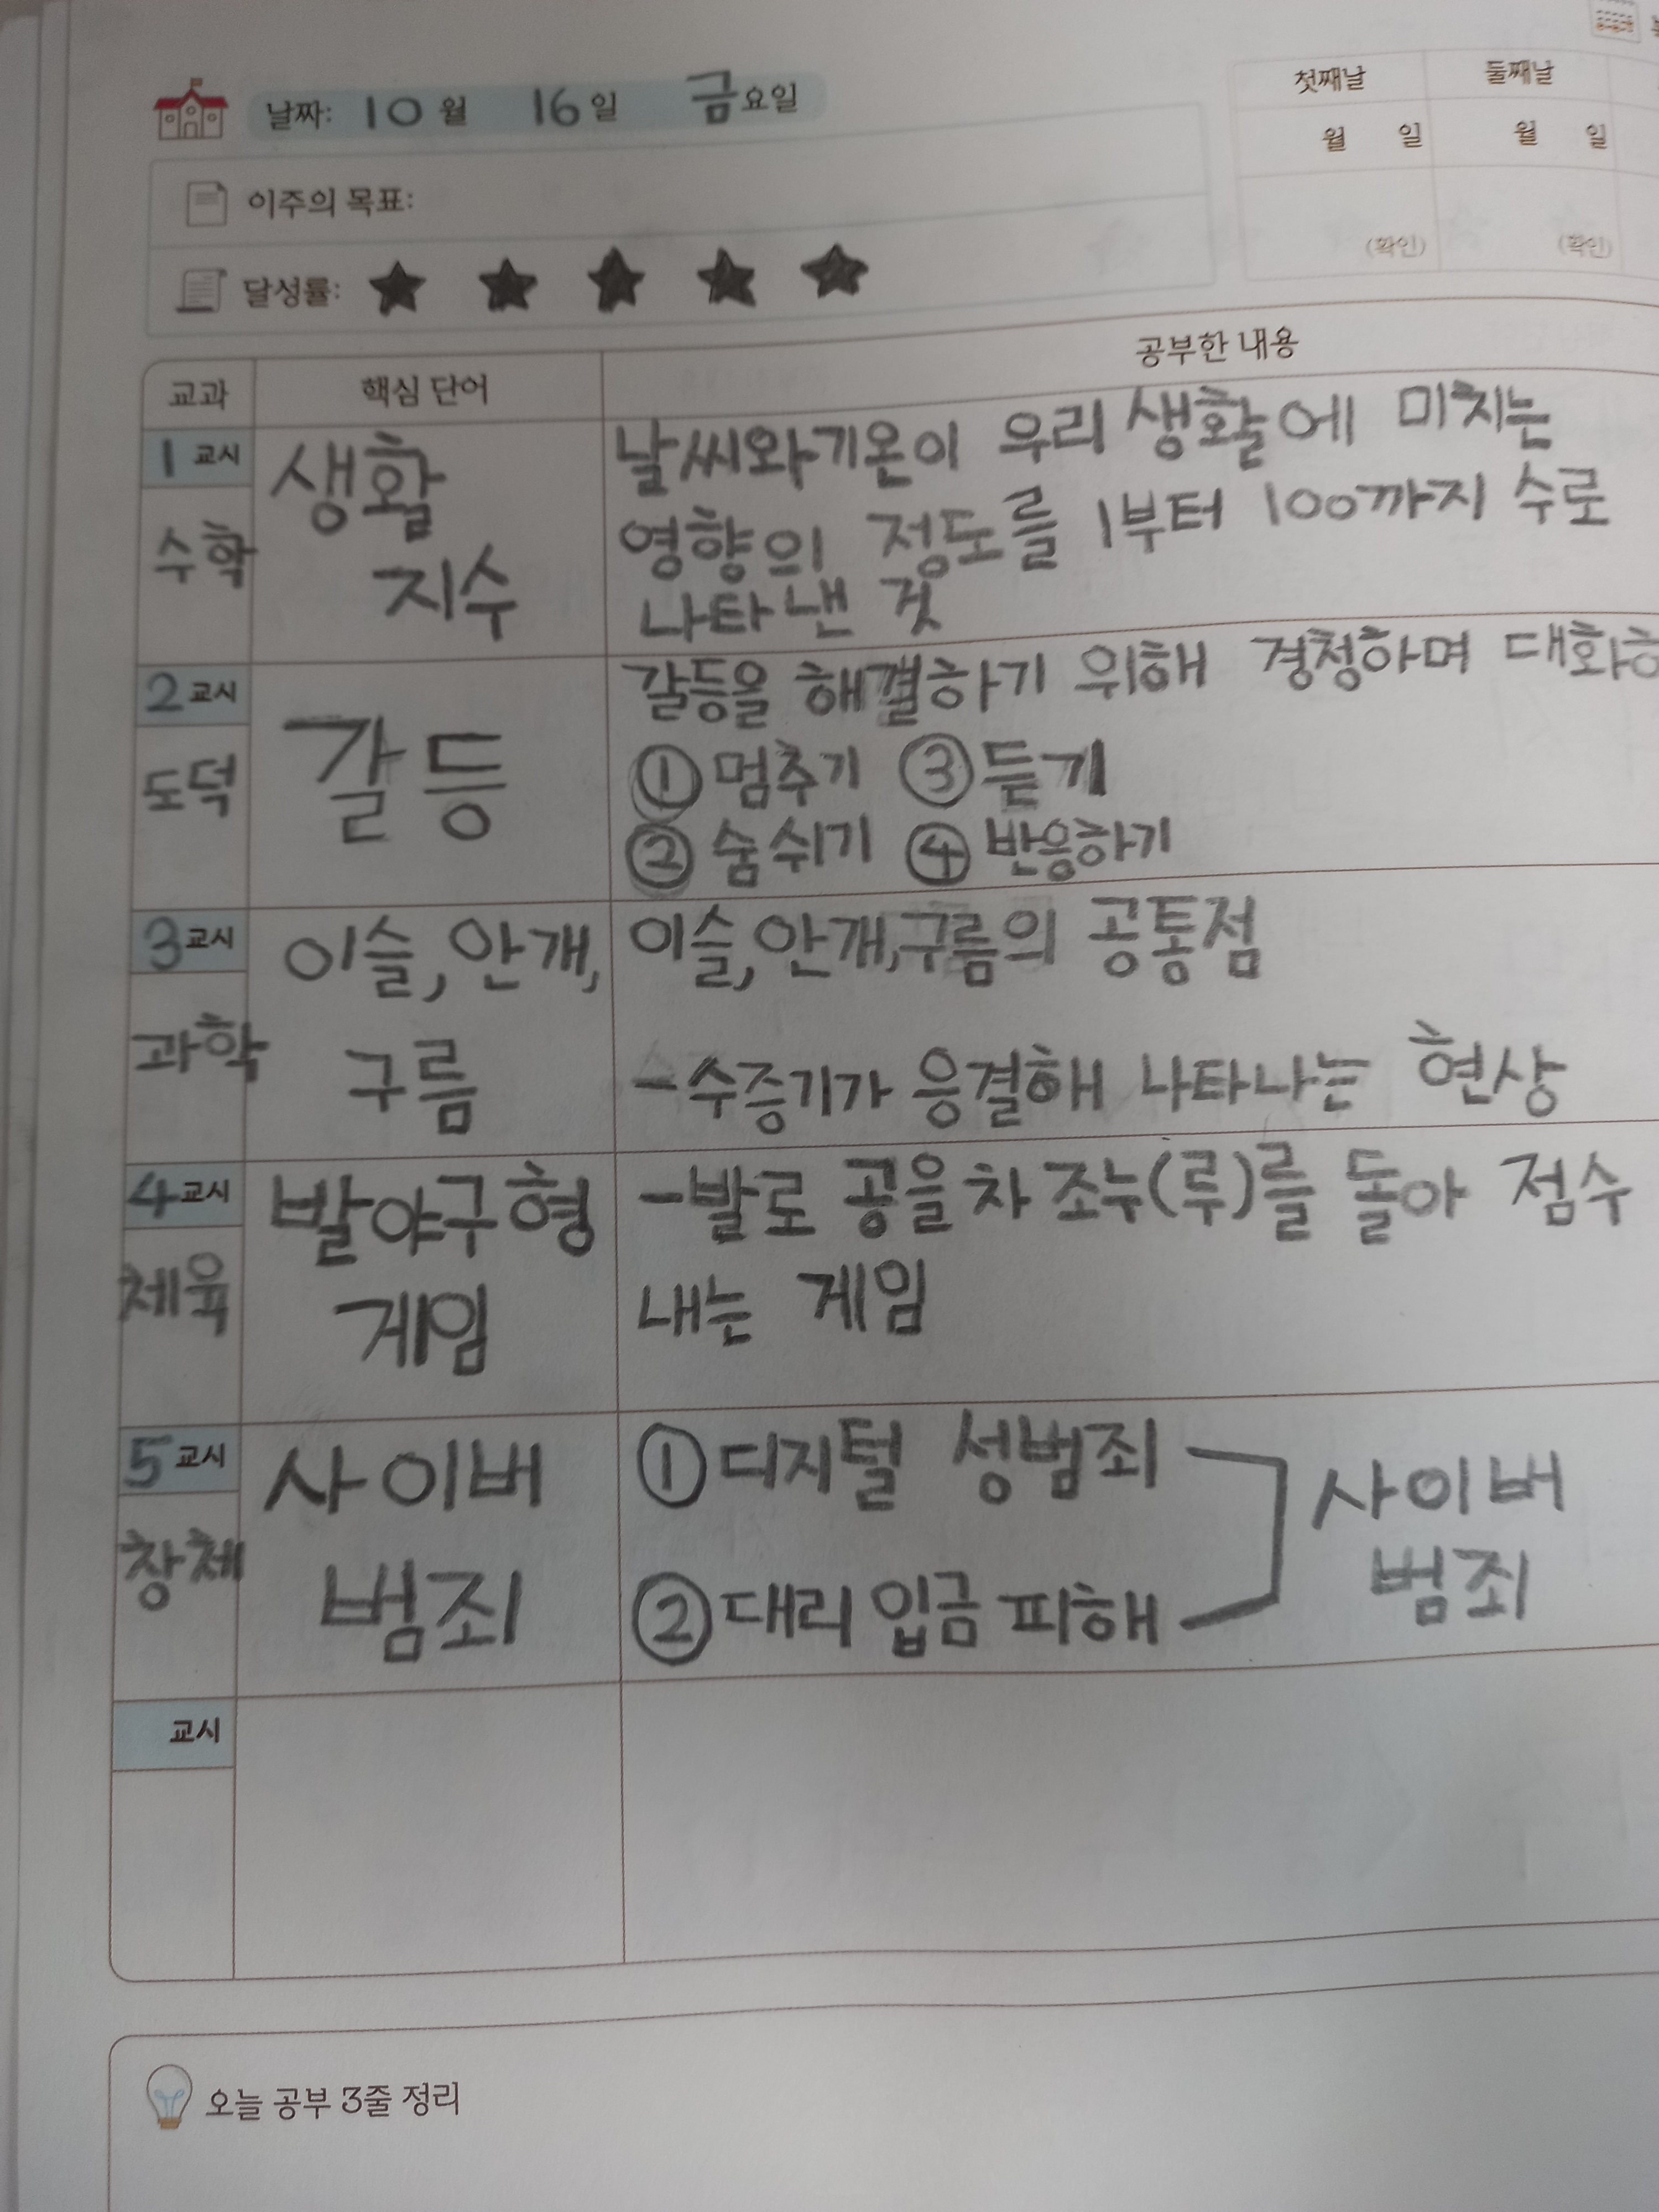 날짜: 10월 16일 금요일
이주의 목표:
달성률: ★ ★ ★ ★ ★
첫째날 둘째날
월 일 월 일
(확인) (확인)
교과 핵심 단어 공부한 내용
1교시
수학
생활
지수
날씨와기온이 우리 생활에 미치는
영향의 정도를 1부터 100까지 수로
나타낸 것
2교시
도덕
갈등
갈등을 해결하기 위해 경청하며 대화하
①멈추기 ③듣기
②숨쉬기 ④반응하기
3교시
과학
이슬, 안개,
구름
이슬,안개,구름의 공통점
-수증기가 응결해 나타나는 현상
4교시
체육
발야구형
게임
-발로 공을 차 조누(루)를 돌아 점수
내는 게임
5교시
창체
사이버
범죄
①디지털 성범죄
②대리입금 피해
사이버
범죄
교시
오늘 공부 3줄 정리